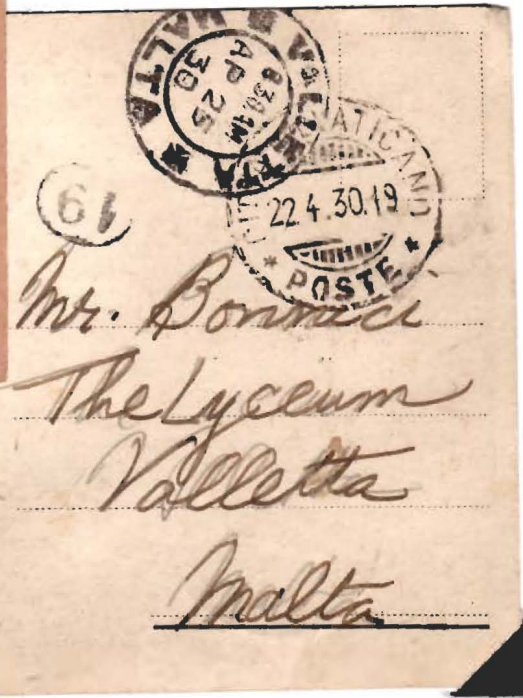 VALLETTA
MALTA
8 30 AM
AP 25
30
VATICANO
22.4.30.19
POSTE
19
Mr. Bonnici
The Lyceum
Valletta
Malta